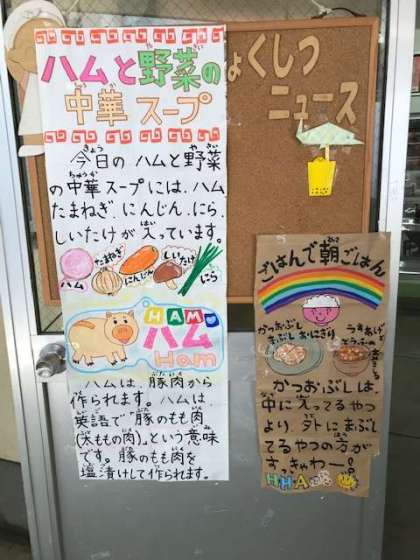 ハムと野菜の
中華スープ
ょくしつ
ニュース
今日の ハムと野菜
の中華スープには、ハム
たまねぎ、にんじん、にら、
しいたけが入っています。
ハム たまねぎ にんじん しいたけ にら
HAM
ハム
Ham
ハムは、豚肉から
作られます。ハムは
英語で「豚のもも肉
(太もも肉)」という意味
です。豚のもも肉を
塩漬けして作られます。
ごはんで朝ごはん
かつおぶし
まぶしおにぎり
かつおぶしは、
中に入ってるやつ
より、外にまぶし
てるやつの方が
すっきゃわー!